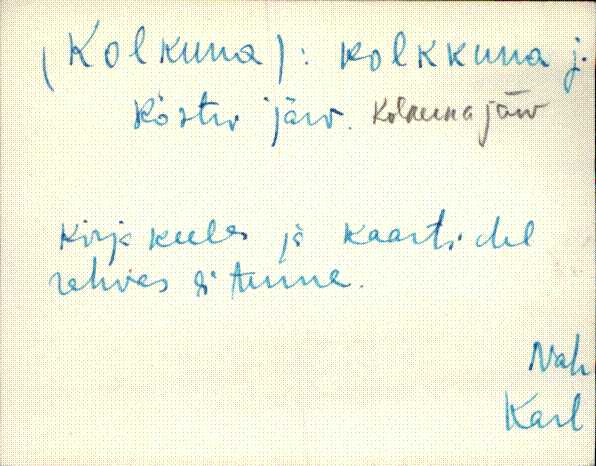 (Kolkuna): kolkkuna j.
Köstri järv. Kolkuna järv
Kirjakeeles ja kaartidel
rahvas ei tunne.
Nah
Karl